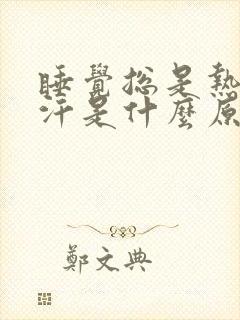 睡覺總是熱
汗是什麼原
鄭文典